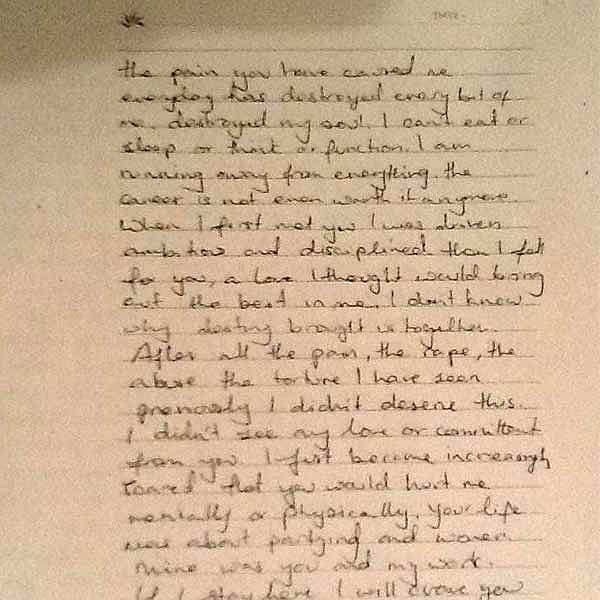 the pain you have caused me
everyday has destroyed every bit of
me, destroyed my soul. I can't eat or
sleep or think or function. I am
running away from everything. the
career is not even worth it anymore.
When I first met you I was driven
ambitious and disciplined then I fell
for you, a love I thought would bring
out the best in me. I don't know
why destiny brought us together.
After all the pain, the rape, the
abuse the torture I have seen
previously I didn't deserve this.
I didn't see any love or commitment
from you. I just became increasingly
scared that you would hurt me
mentally or physically. Your life
was about partying and women.
Mine was you and my work.
If I stay here I will crave you